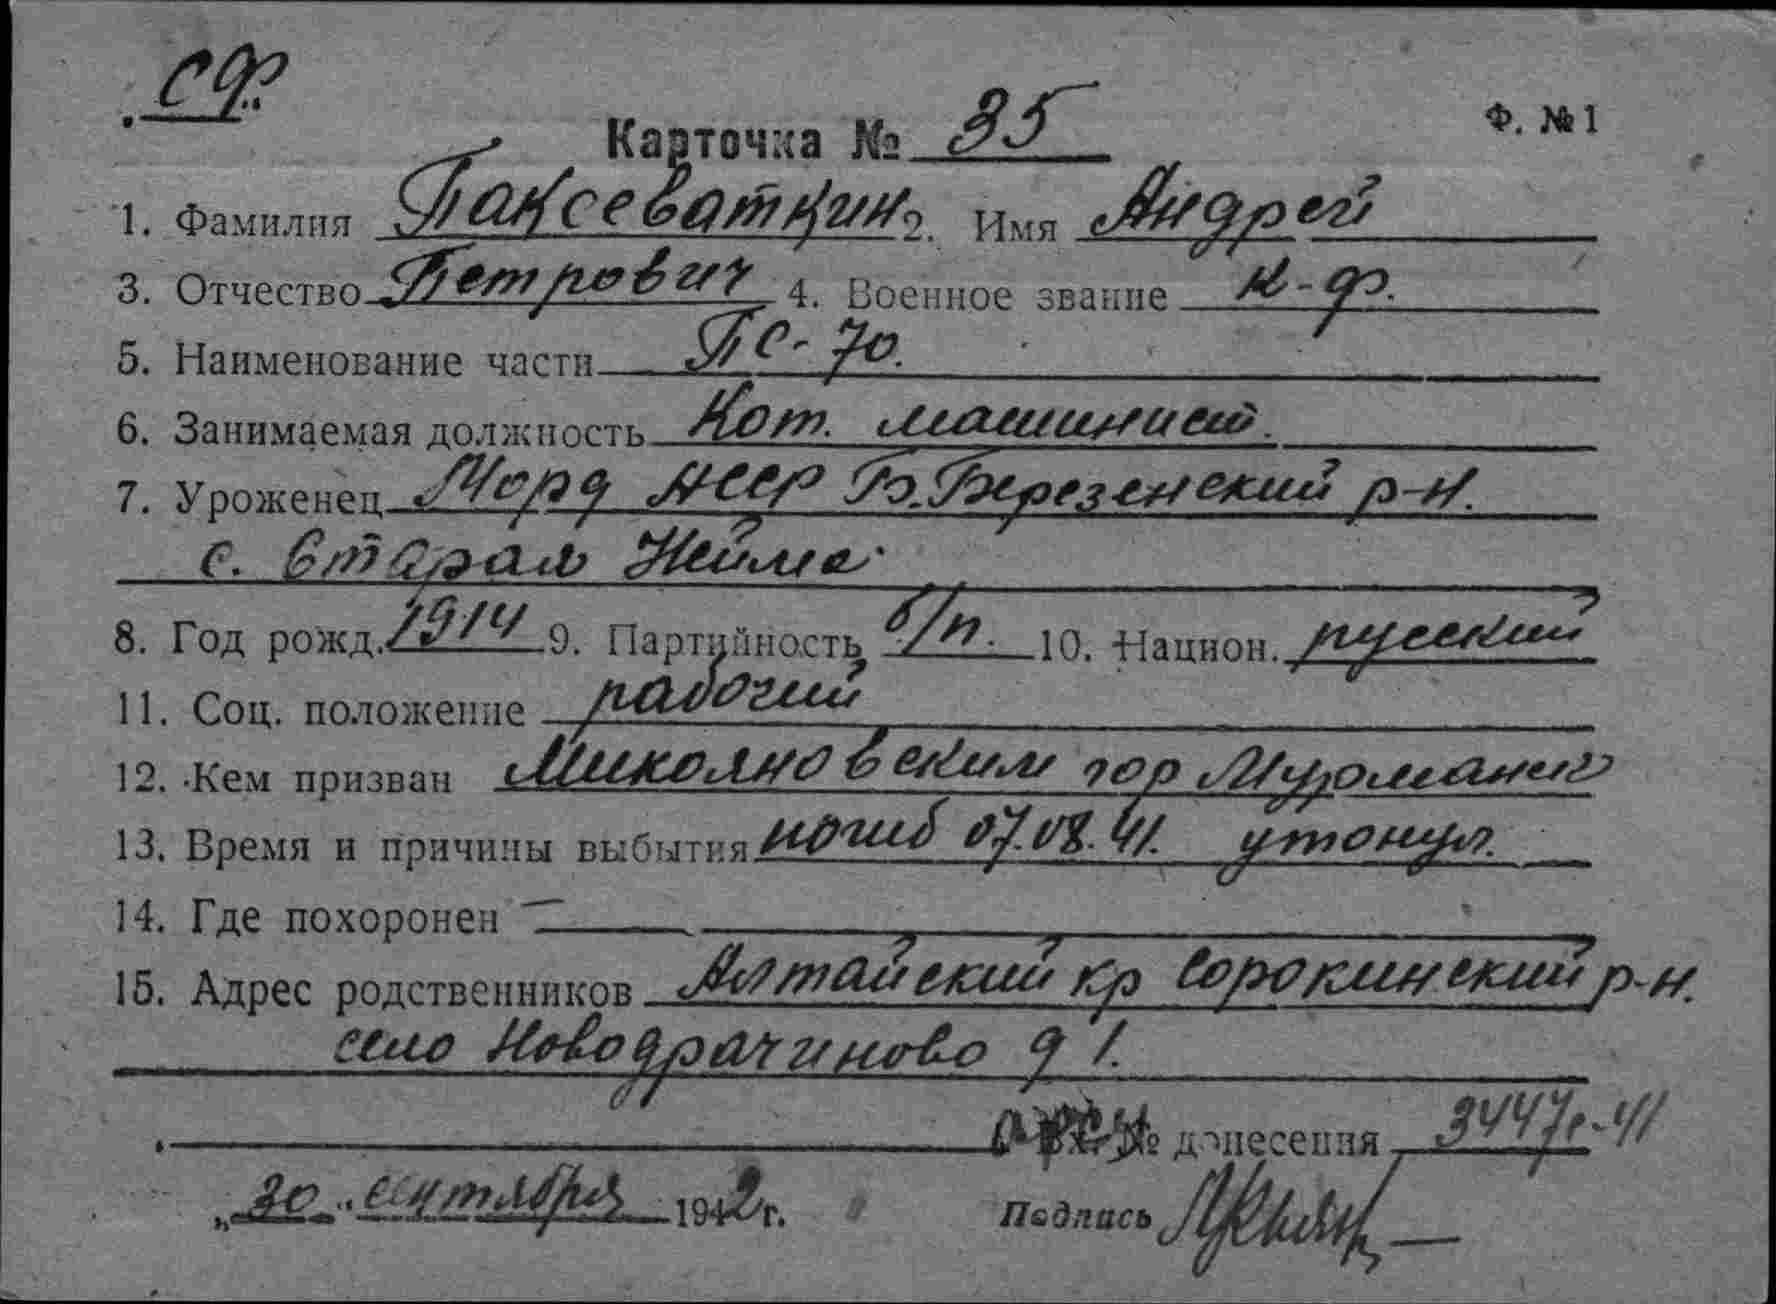 СФ.
Карточка № 35 Ф. №1
1. Фамилия Паксеваткин 2. Имя Андрей
3. Отчество Петрович 4. Военное звание к-ф.
5. Наименование части ПС-70.
6. Занимаемая должность Кот. машинист.
7. Уроженец Морд АССР Б.Березенский р-н.
с. Старая
8. Год рожд. 1914 9. Партийность б/п. 10. Национ. русский
11. Соц. положение рабочий
12. Кем призван Миколновским гор Мурманск
13. Время и причины выбытия погиб 07.08.41. утонул.
14. Где похоронен —
15. Адрес родственников Алтайский кр Сорокинский р-н.
село Новодрачиново д 1.
№ донесения 3447с-41
„30" сентября 1942 г. Подпись